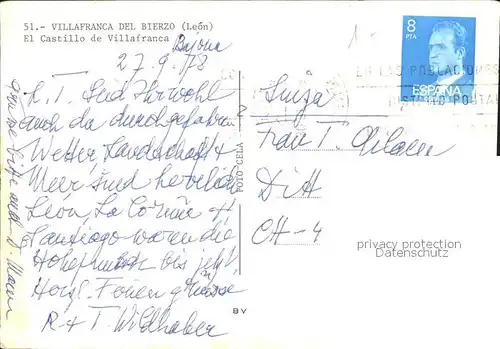 51.- VILLAFRANCA DEL BIERZO (León)
El Castillo de Villafranca
Bajona
27.9.78
L. T. Seid Ihr wohl
auch da durchgefahren?
Wetter, Landschaft +
Meer sind herrlich
León, La Coruña +
Santiago waren die
Höhepunkte bis jetzt
Herzl. Feriengrüsse
R + T. Wildhaber
Grüsse auch D. Mann
FOTO CELA
BV
8
PTA
ESPAÑA
EN LAS POBLACIONES
DISTRITO POSTAL
Suiza
Frau T.
CH-4
privacy protection
Datenschutz